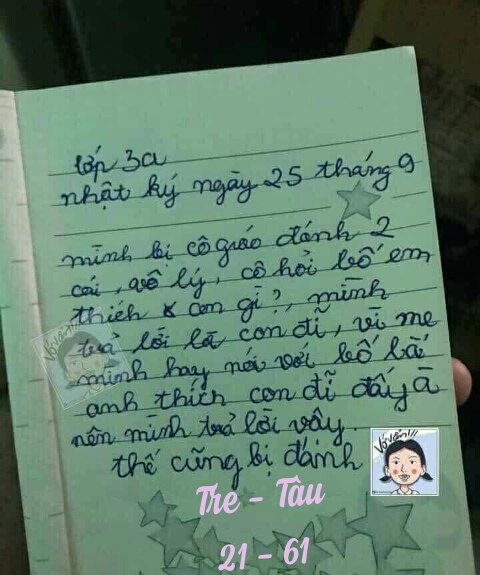 lớp 3a
nhật ký ngày 25 tháng 9
mình bị cô giáo đánh 2
cái, vô lý, cô hỏi bố em
thích con gì?, mình
trả lời là con đĩ, vì mẹ
mình hay nói với bố là
anh thích con đĩ đấy à
nên mình trả lời vậy.
thế cũng bị đánh
Vớ vẩn!!!
Vớ vẩn!!!
Tre - Tàu
21 - 61